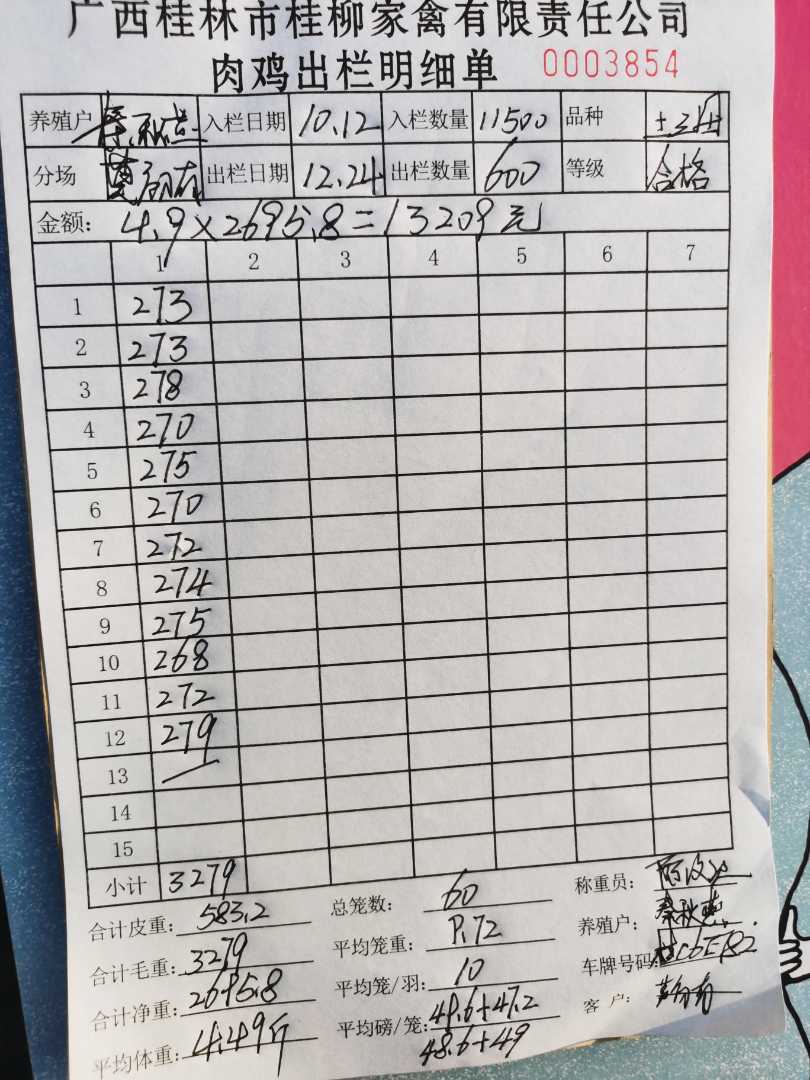 广西桂林市桂柳家禽有限责任公司
肉鸡出栏明细单 0003854
养殖户 秦秋莲 入栏日期 10.12 入栏数量 11500 品种
分场 出栏日期 12.24 出栏数量 600 等级 合格
金额: 4.9×2695.8=13209元
1 2 3 4 5 6 7
1 273
2 273
3 278
4 270
5 275
6 270
7 272
8 274
9 275
10 268
11 272
12 279
13
14
15
小计 3279
合计皮重: 583.2 总笼数: 60 称重员:
合计毛重: 3279 平均笼重: 9.72 养殖户:
合计净重: 2695.8 平均笼/羽: 10 车牌号码:
平均体重: 4.49斤 平均磅/笼: 49.6+47.2 客 户:
48.6+49